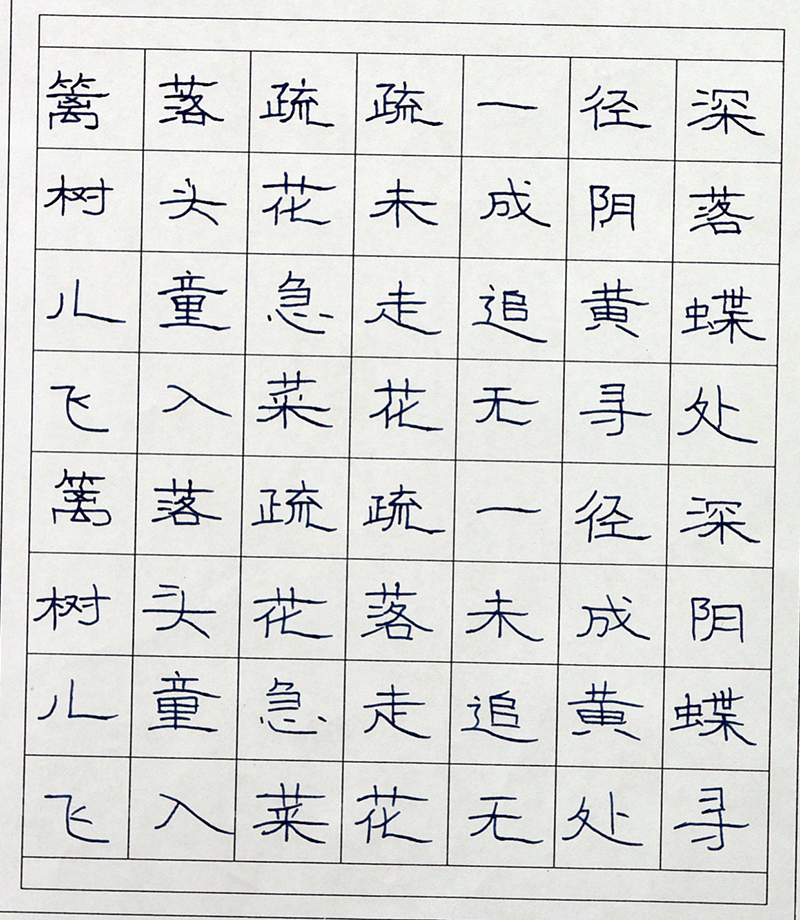 篱落疏疏一径深
树头花未成阴落
儿童急走追黄蝶
飞入菜花无寻处
篱落疏疏一径深
树头花落未成阴
儿童急走追黄蝶
飞入菜花无处寻